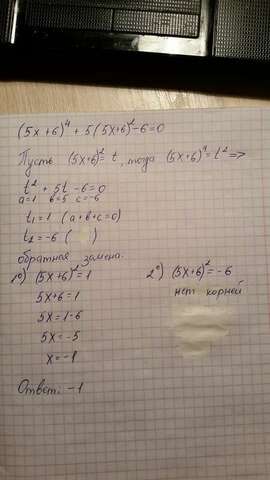 (5x+6)⁴ + 5(5x+6)² - 6 = 0
Пусть (5x+6)² = t, тогда (5x+6)⁴ = t² =>
t² + 5t - 6 = 0
a=1 b=5 c=-6
t₁ = 1 (a+b+c=0)
t₂ = -6 ( )
обратная замена.
1°) (5x+6)² = 1
5x+6 = 1
5x = 1-6
5x = -5
x = -1
2°) (5x+6)² = -6
нет корней
Ответ: -1